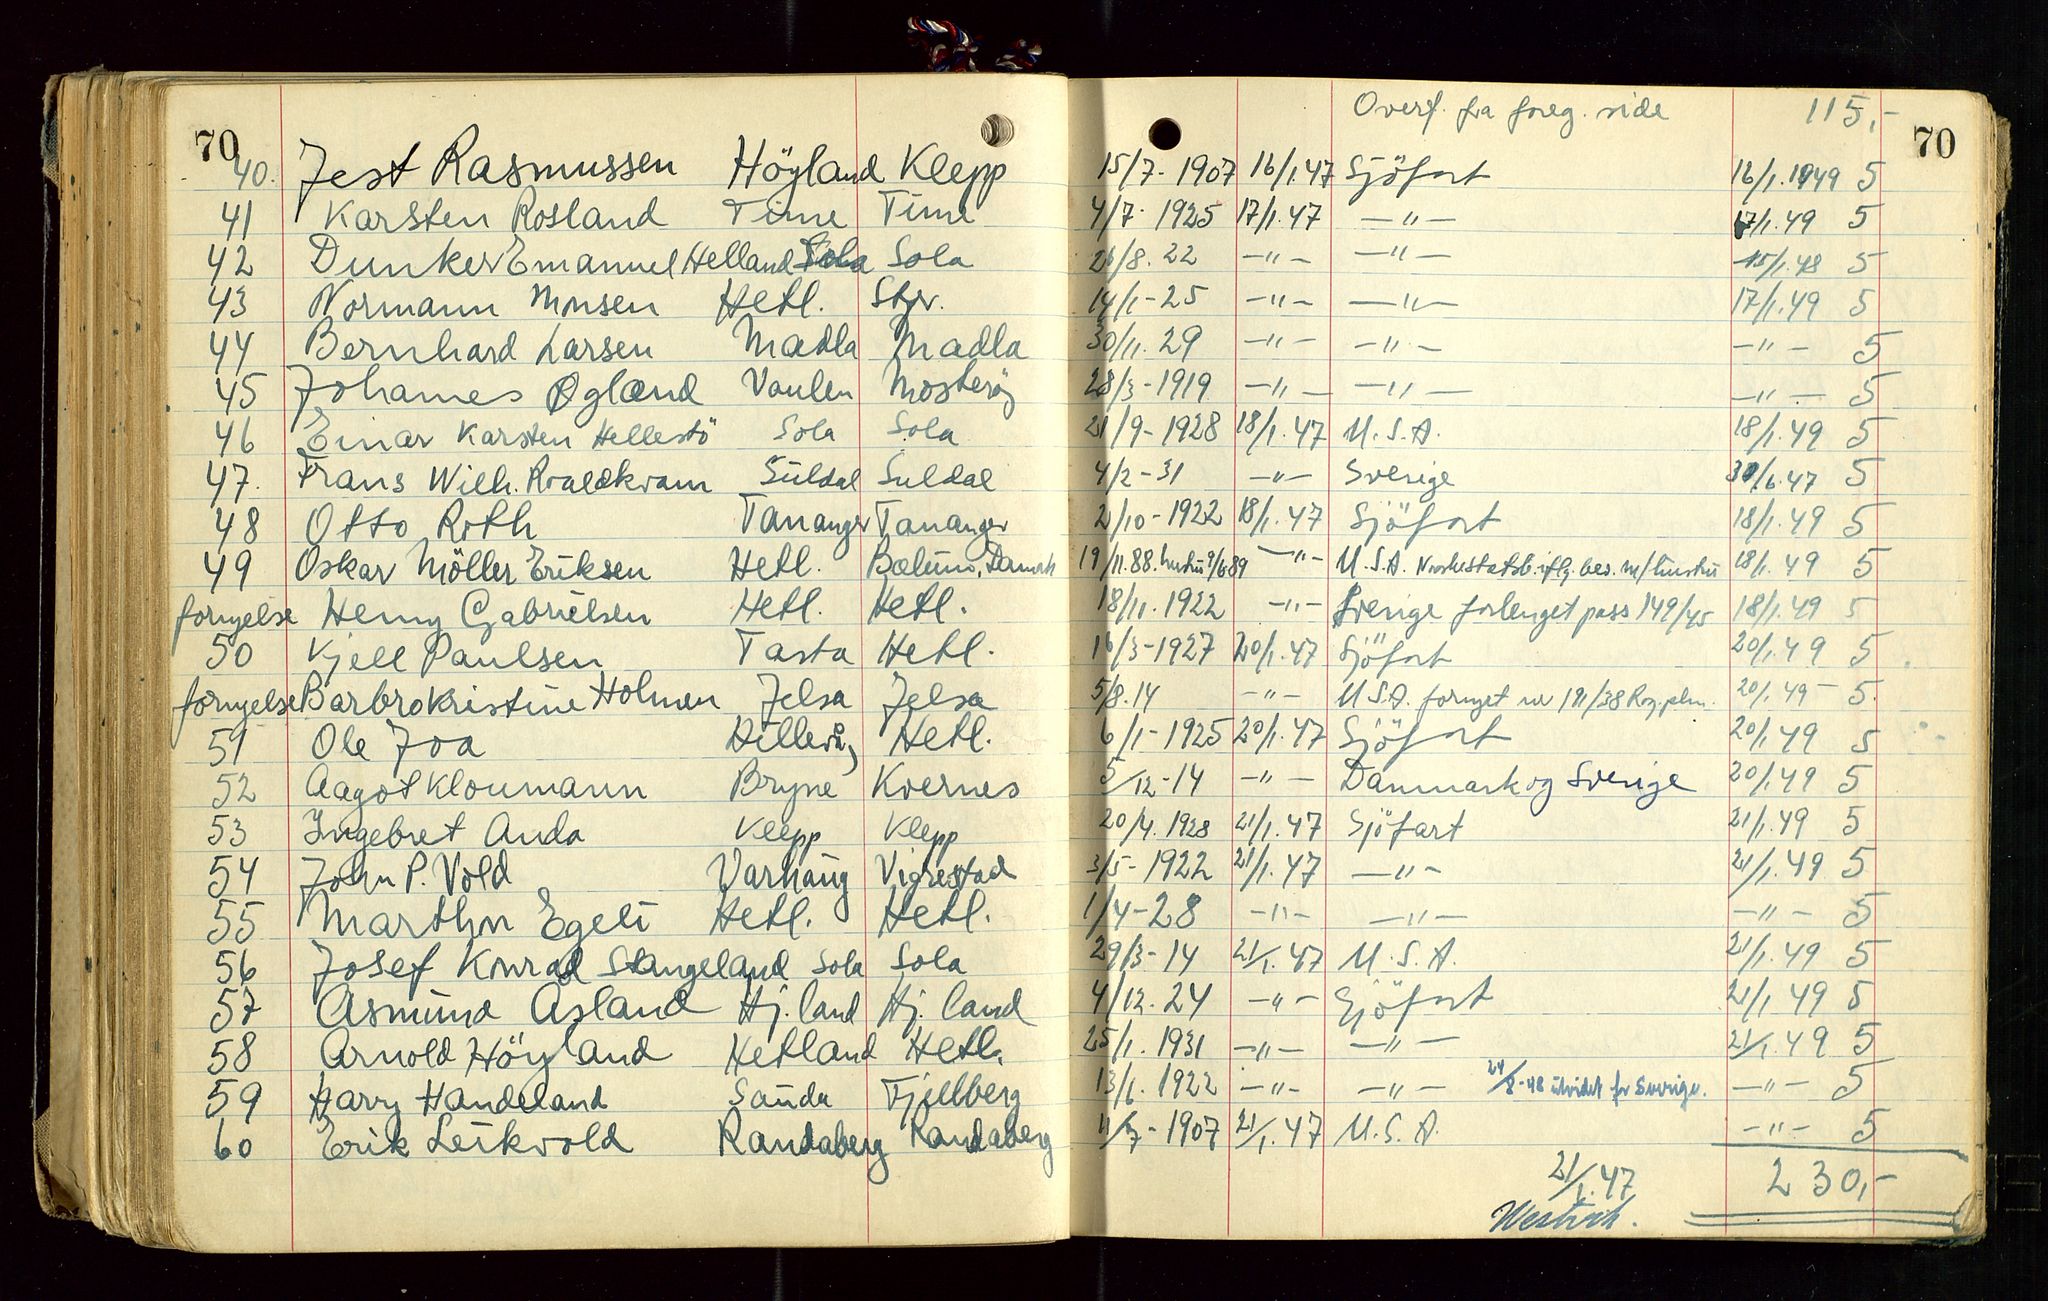 Overf. fra foreg. side 115,-
70 70
40. Jest Rasmussen Höyland Klepp 15/7- 1907 16/1.47 Sjöfart 16/1.1949 5
41 Karsten Rosland Time Time 4/7- 1925 17/1.47 —"— 17/1.49 5
42 Dunker Emanuel Helland Sola Sola 26/8.22 —"— —"— 15/1.48 5
43 Normann Monsen Hetl. Stgr. 14/1-25 —"— —"— 17/1.49 5
44 Bernhard Larsen Madla Madla 30/11.29 —"— —"— —"— 5
45 Johannes Øgland Vaulen Mosterøy 28/3-1919 —"— —"— —"— 5
46 Einar Karsten Hellestö Sola Sola 21/9-1928 18/1.47 U.S.A. 18/1.49 5
47. Frans Wilh. Roaldkvam Suldal Suldal 4/2-31 —"— Sverige 30/6.47 5
48 Otto Roth Tananger Tananger 2/10-1922 18/1.47 Sjöfart 18/1.49 5
49 Oskar Möller Eriksen Hetl. Danmark 19/11.88. hustru 9/6.89 —"— U.S.A. Norske statsb. iflg. bev. m/hustru 18/1.49 5
fornyelse Henny Gabrielsen Hetl. Hetl. 18/11.1922 —"— Sverige forlenget pass 149/45 18/1.49 5
50 Kjell Paulsen Tasta Hetl. 16/3-1927 20/1.47 Sjöfart 20/1.49 5
fornyelse Barbro Kristine Holmen Jelsa Jelsa 5/8.14 —"— U.S.A. fornyet nr 191/38 Rog. plm. 20/1.49 5.
51 Ole Joa Hillevåg Hetl. 6/1-1925 20/1.47 Sjöfart 20/1.49 5
52 Aagot Kloumann Bryne Kvernes 5/12-14 —"— Danmark og Sverige 20/1.49 5
53 Ingebret Anda Klepp Klepp 20/4.1928 21/1.47 Sjöfart 21/1.49 5
54 John P. Vold Varhaug Vigrestad 3/5-1922 21/1.47 —"— 21/1.49 5
55 Marthin Egeli Hetl. Hetl. 1/4-28 —"— —"— —"— 5
56 Josef Konrad Stangeland Sola Sola 29/3-14 21/1.47 U.S.A. 21/1.49 5
57 Asmund Åsland Hj.land Hj.land 4/12.24 —"— Sjöfart 21/1.49 5
58 Arnold Höyland Hetland Hetl. 25/1.1931 —"— —"— 21/1.49 5
59 Harry Handeland Sauda Fjellberg 13/6.1922 —"— —"— 24/8-48 utvidet for Sverige. —"— 5
60 Erik Leikvold Randaberg Randaberg 11/7-1907 21/1.47 U.S.A. —"— 5
21/1.47 230,-